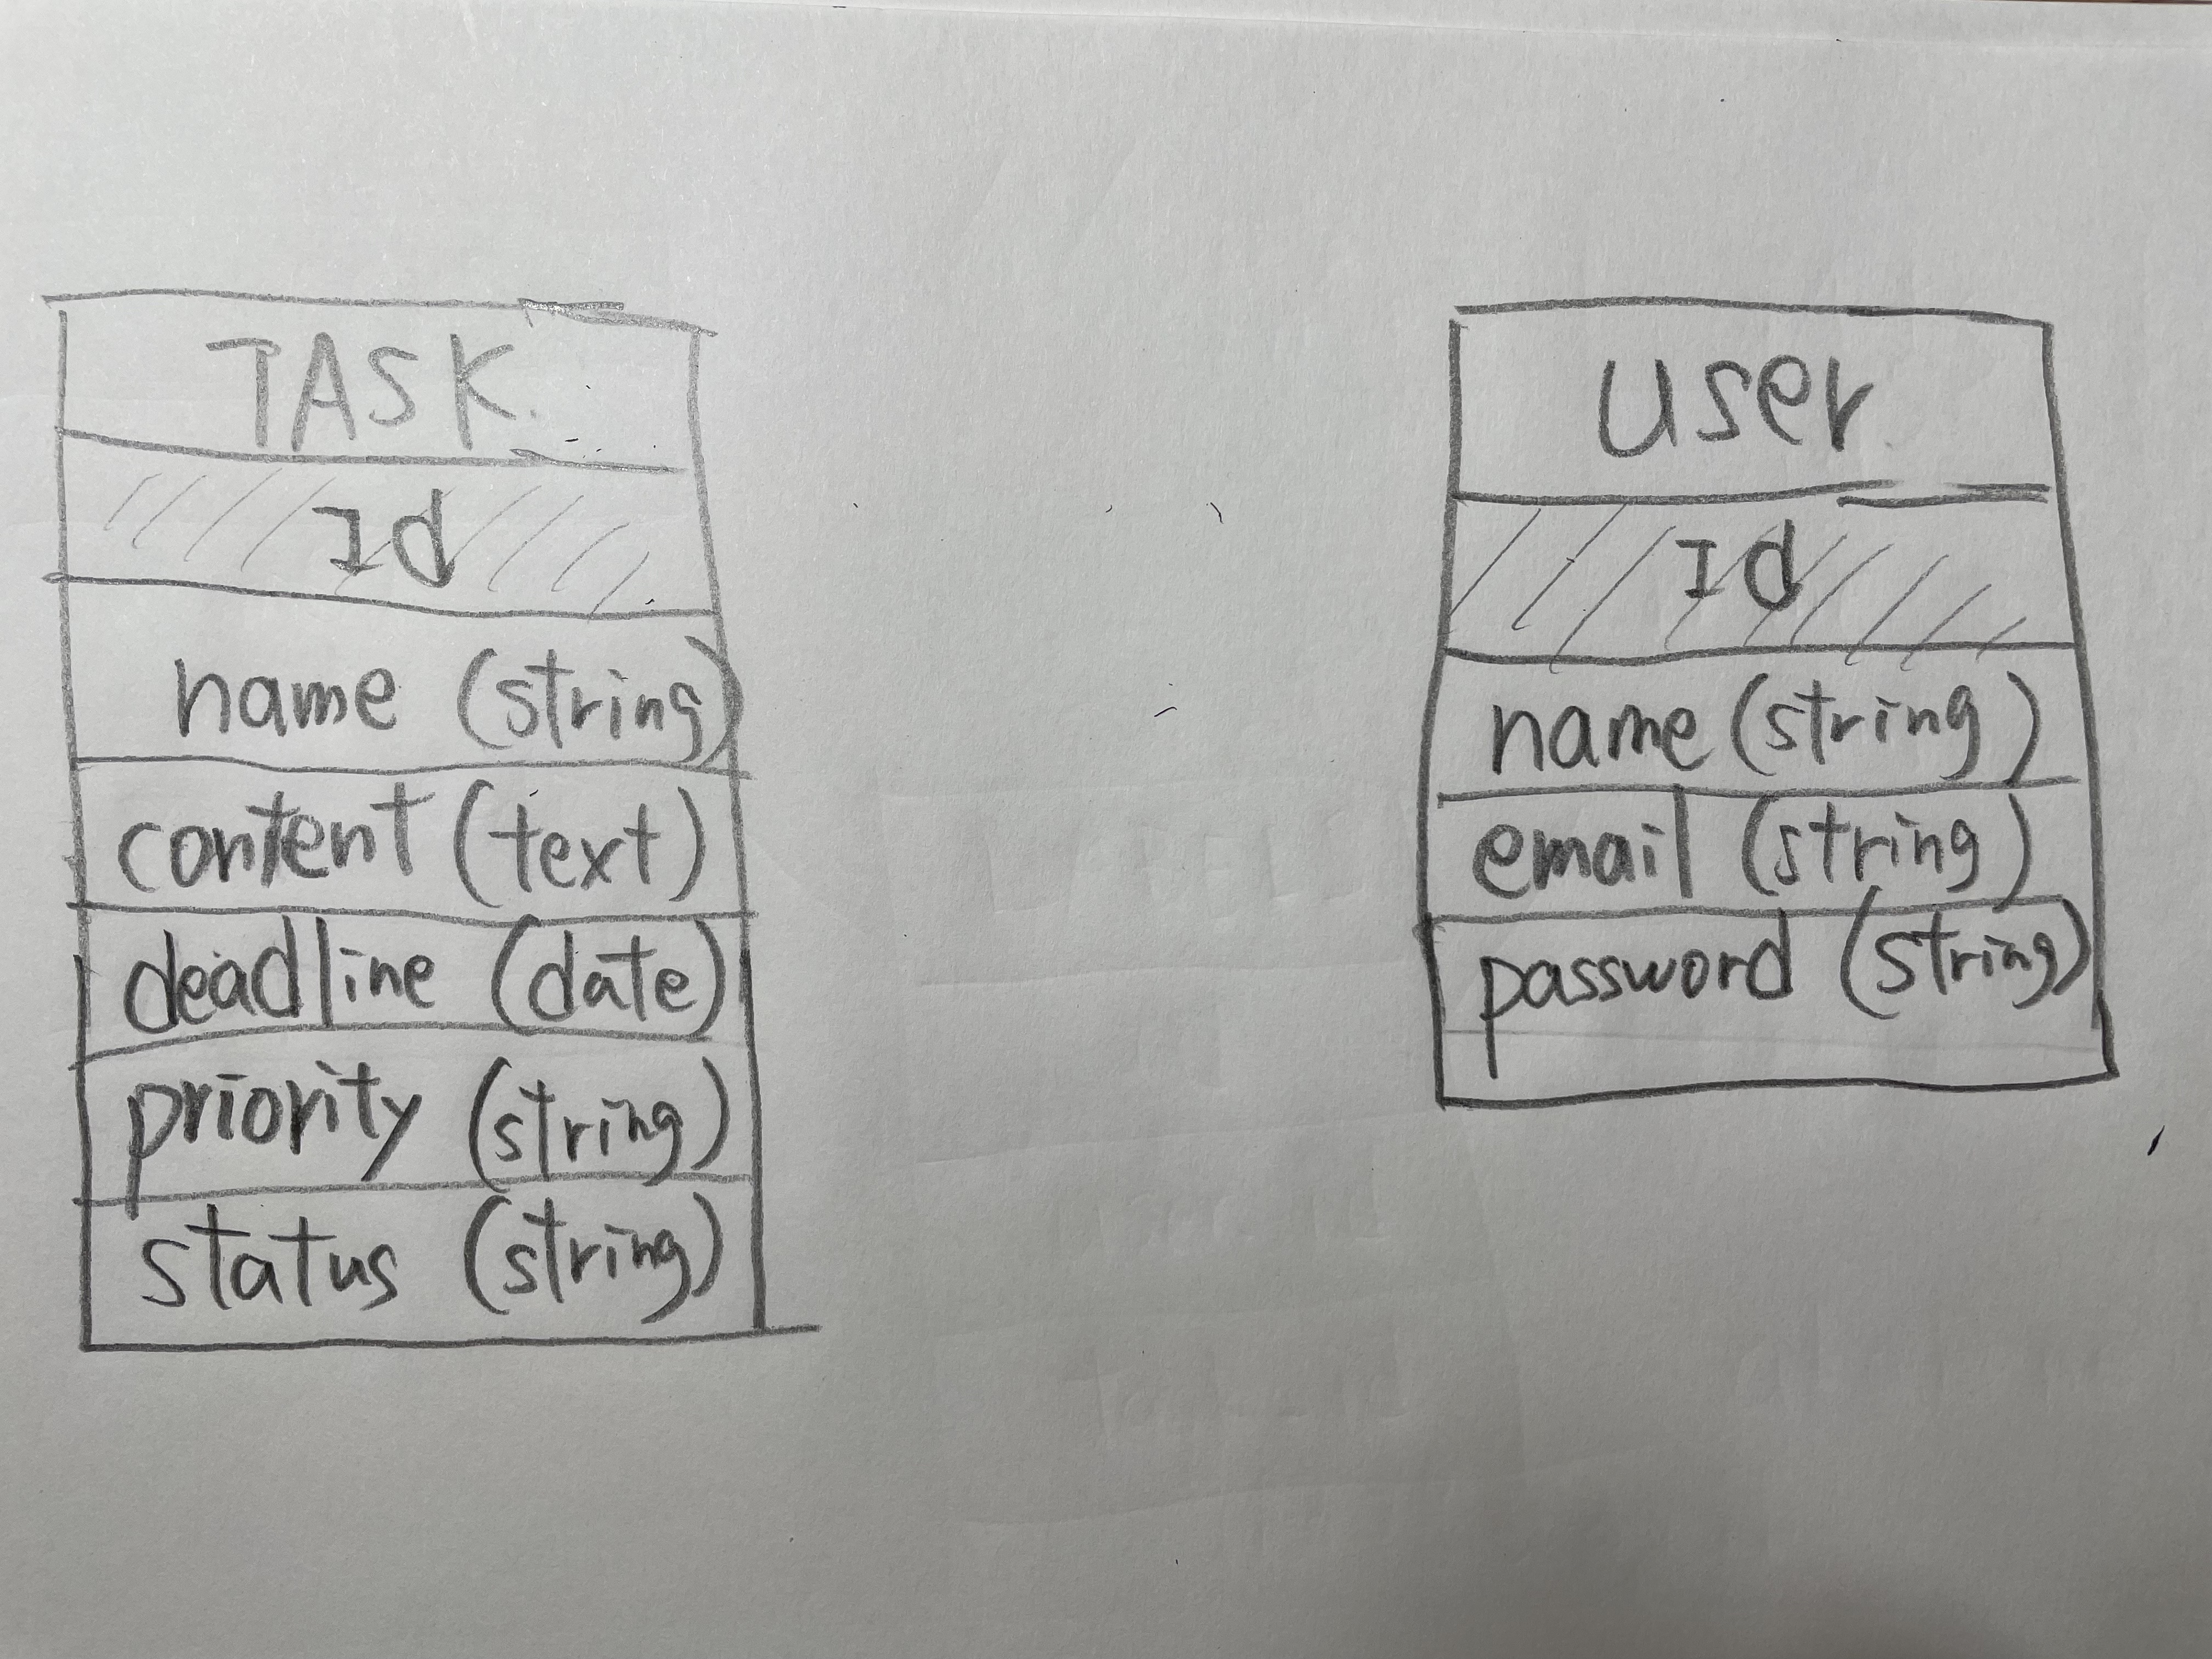 TASK.
Id
name (string)
content (text)
deadline (date)
priority (string)
status (string)
user
Id
name (string)
email (string)
password (string)